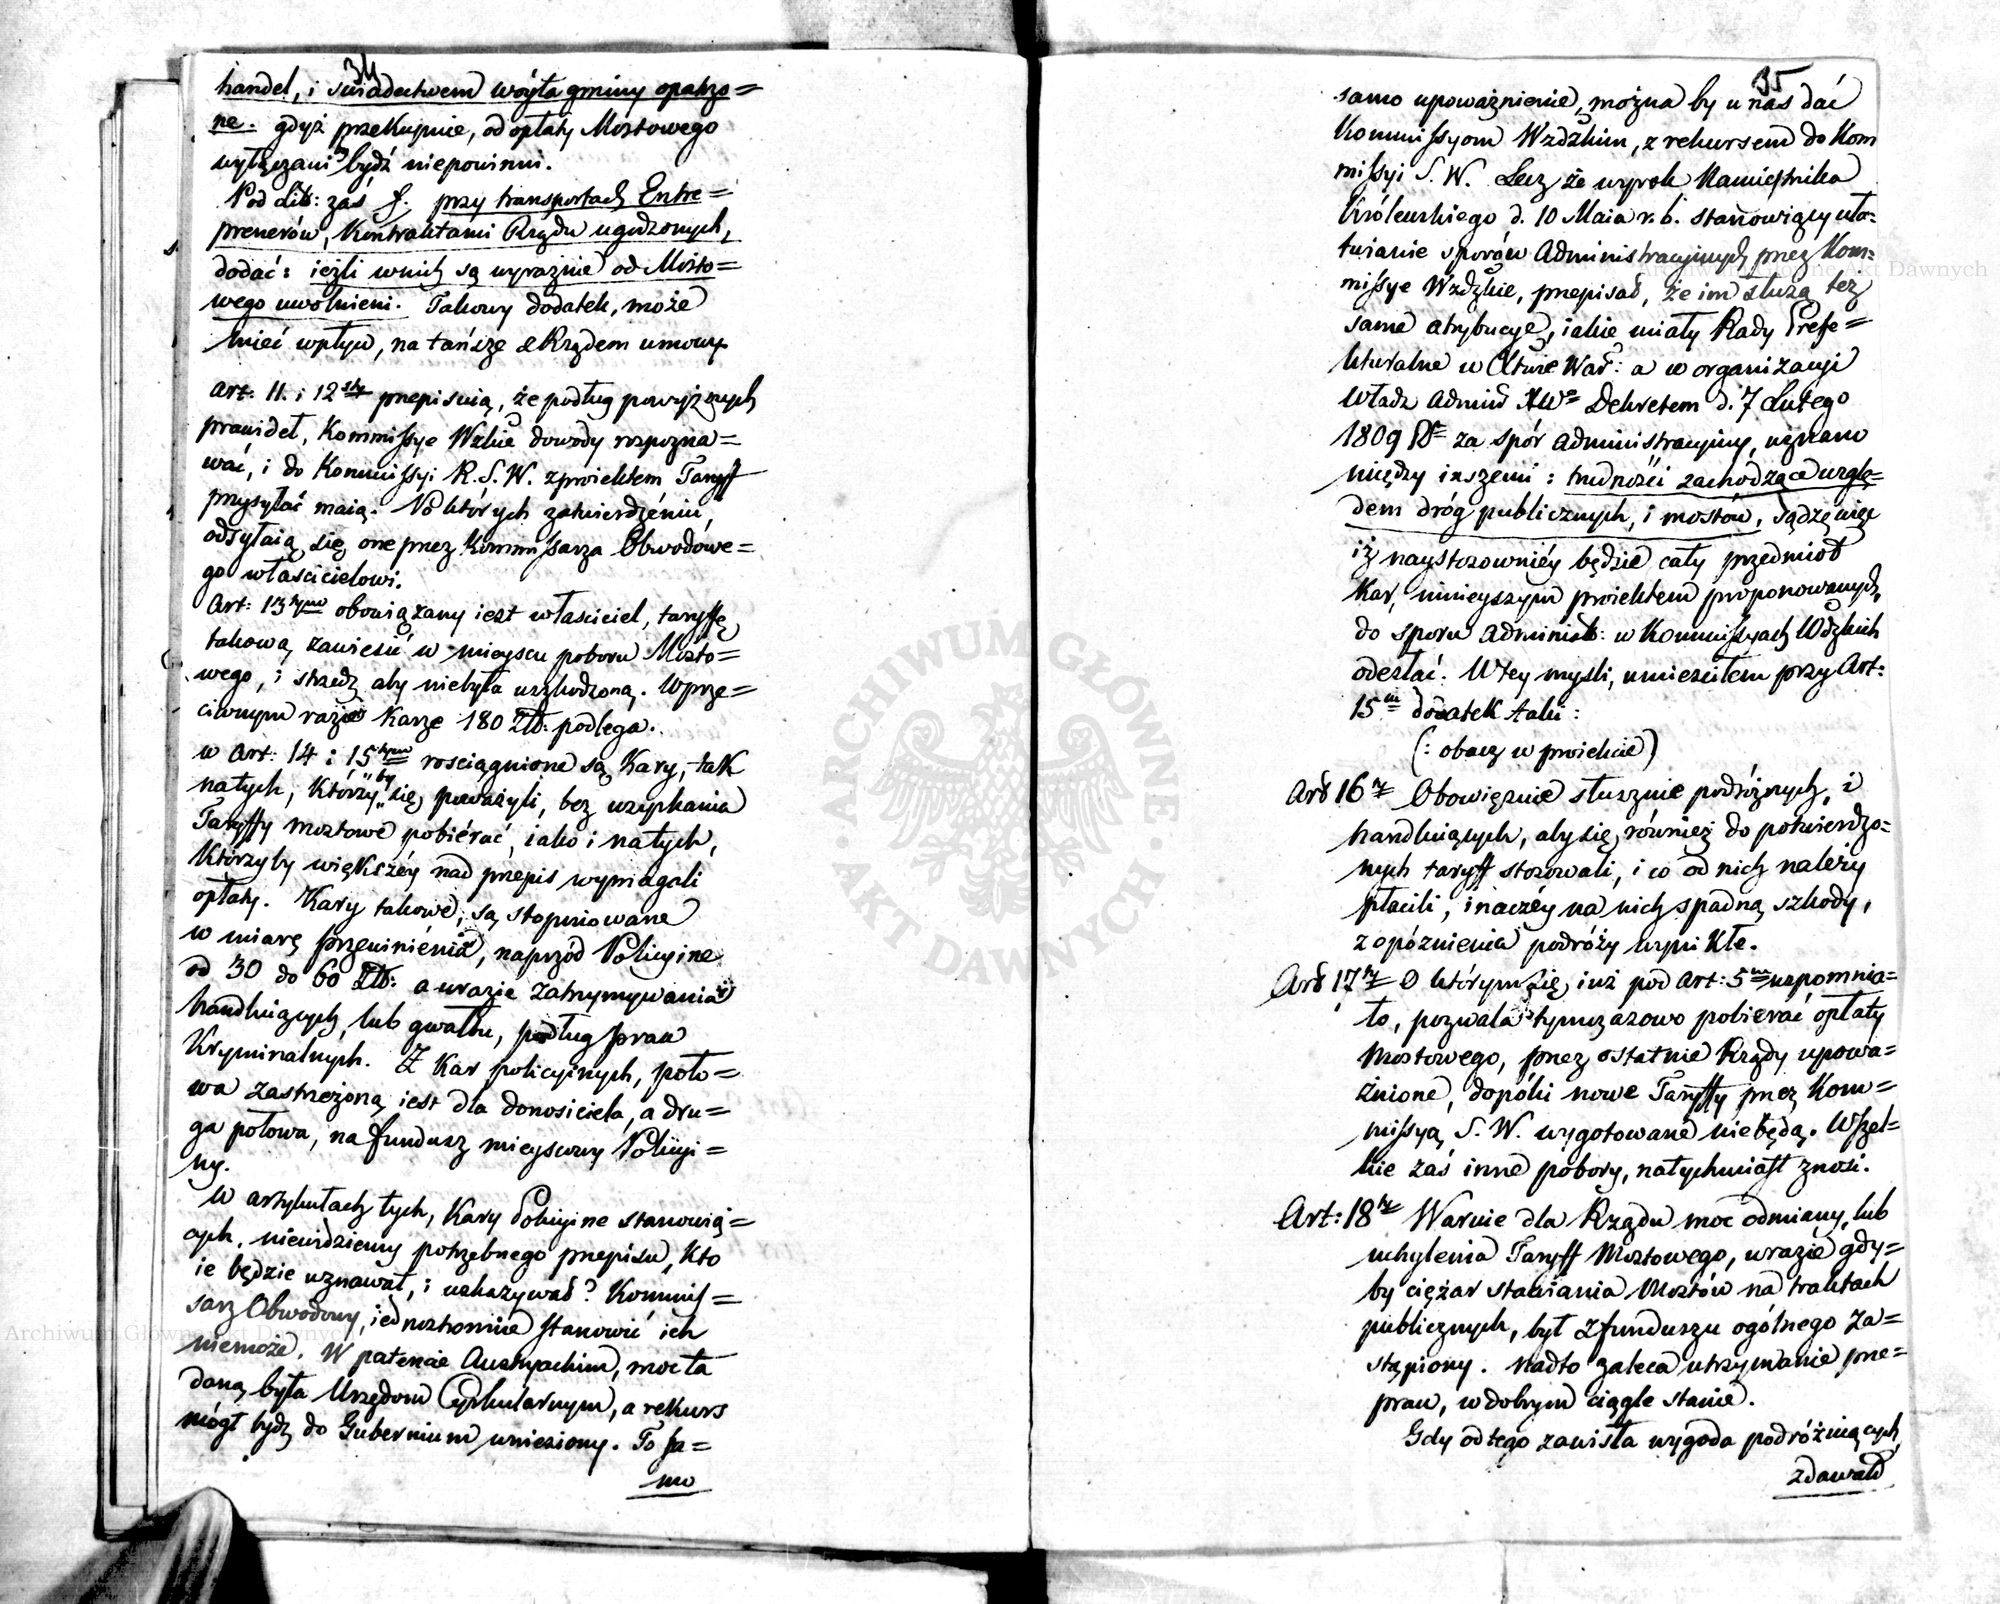 34
handel, i świadectwem wóyta gminy opatrzo=
ne. gdyż przekupnie, od opłaty Mostowego
wyłączani bydź niepowinni.
Pod Litt: zaś f. przy transportach Entre=
prenerów, Kontraktami Rządu ugodzonych,
dodać: ieżli w nich są wyraźnie od Mosto=
wego uwolnieni. Takowy dodatek, może
mieć wpływ, na tańsze z Rządem umowy.
Art: 11. i 12sty przepisuią, że podług powyższych
prawideł, Kommissye Wzkie dowody rozpozna=
wać, i do Kommissyi R.S.W. z proiektem Taryff
przysyłać maią. Po których zatwierdzeniu,
odsyłaią się one przez Kommissarza Obwodowe=
go właścicielowi.
Art: 13tym obowiązany iest właściciel, taryffę
takową zawiesić w mieyscu poboru Mosto=
wego, i strzedz aby niebyła uszkodzoną. W prze=
ciwnym razie karze 180 Złt: podlega.
w Art: 14 i 15tym rosciągnione są kary, tak
natych, którzy by się poważyli, bez uzyskania
Taryffy mostowe pobiérać, iako i natych,
którzyby większéy nad przepis wymagali
opłaty. Kary takowe, są stopniowane
w miarę przewiniénia, naprzód Policyine
od 30 do 60 Złt: a w razie zatrzymywania
handluiących, lub gwałtu, podług praw
Kryminalnych. Z Kar policyinych, poło=
wa zastrzeżoną iest dla donosiciela, a dru=
ga połowa, na fundusz mieyscowy Policyi=
ny.
W artykułach tych, kary Policyine stanowią=
cych, niewidziemy potrzebnego przepisu, kto
ie będzie uznawał, i wskazywał? Kommis=
sarz Obwodowy, iednostronnie stanowić ich
niemoże. W patencie Austryackim, moc ta
daną była Urzędom Cyrkularnym, a rekurs
mógł bydź do Gubernium wniesiony. To sa=
mo
35
samo upoważnienie, można by u nas dać
Kommissyom Wzdzkim, z rekursem do Kom
missyi S. W. Lecz że wyrok Namiestnika
Królewskiego d. 10 Maia r. b. stanowiący uła=
twianie sporów Administracyinych przez Kom=
missye Wzdzkie, przepisał, że im służą też
same atrybucye, iakie miały Rady Prefe=
kturalne w Xtwie War: a w organizacyi
władz Admin Xwa Dekretem d. 7 Lutego
1809 R= za spór administracyiny, uznano
między inszemi: trudności zachodzące wzglę=
dem dróg publicznych, i mostów, sądzę więc
iż naystosowniéy będzie cały przedmiot
Kar, ninieyszym proiektem proponowanych,
do sporu Administr: w Kommissyach Wdzkich
odesłać. W tey myśli, umieściłem przy Art:
15m dodatek taki:
(: obacz w proiekcie)
Art 16ty Obowięzuie słusznie podróżnych, i
handluiących, aby się również do potwierdzo=
nych taryff stosowali, i co od nich należy
płacili, inaczéy na nich spadną szkody,
z opóznienia podróży wynikłe.
Art 17ty O którym się iuż pod Art: 5m wspomnia=
ło, pozwala tymczasowo pobierać opłaty
Mostowego, przez ostatnie Rządy upowa=
żnione, dopóki nowe Taryffy przez Kom=
missyą S. W. wygotowane niebędą. Wszel=
kie zaś inne pobory, natychmiast znosi.
Art: 18ty Waruie dla Rządu moc odmiany, lub
uchylenia Taryff Mostowego, w razie gdy=
by ciężar stawiania Mostów na traktach
publicznych, był z funduszu ogólnego za=
stąpiony. Nadto zaleca utrzymanie prze=
praw, w dobrym ciągle stanie.
Gdy od tego zawisła wygoda podróżuiących,
zdawało
ARCHIWUM GŁÓWNE AKT DAWNYCH
Archiwum Główne Akt Dawnych
Archiwum Główne Akt Dawnych